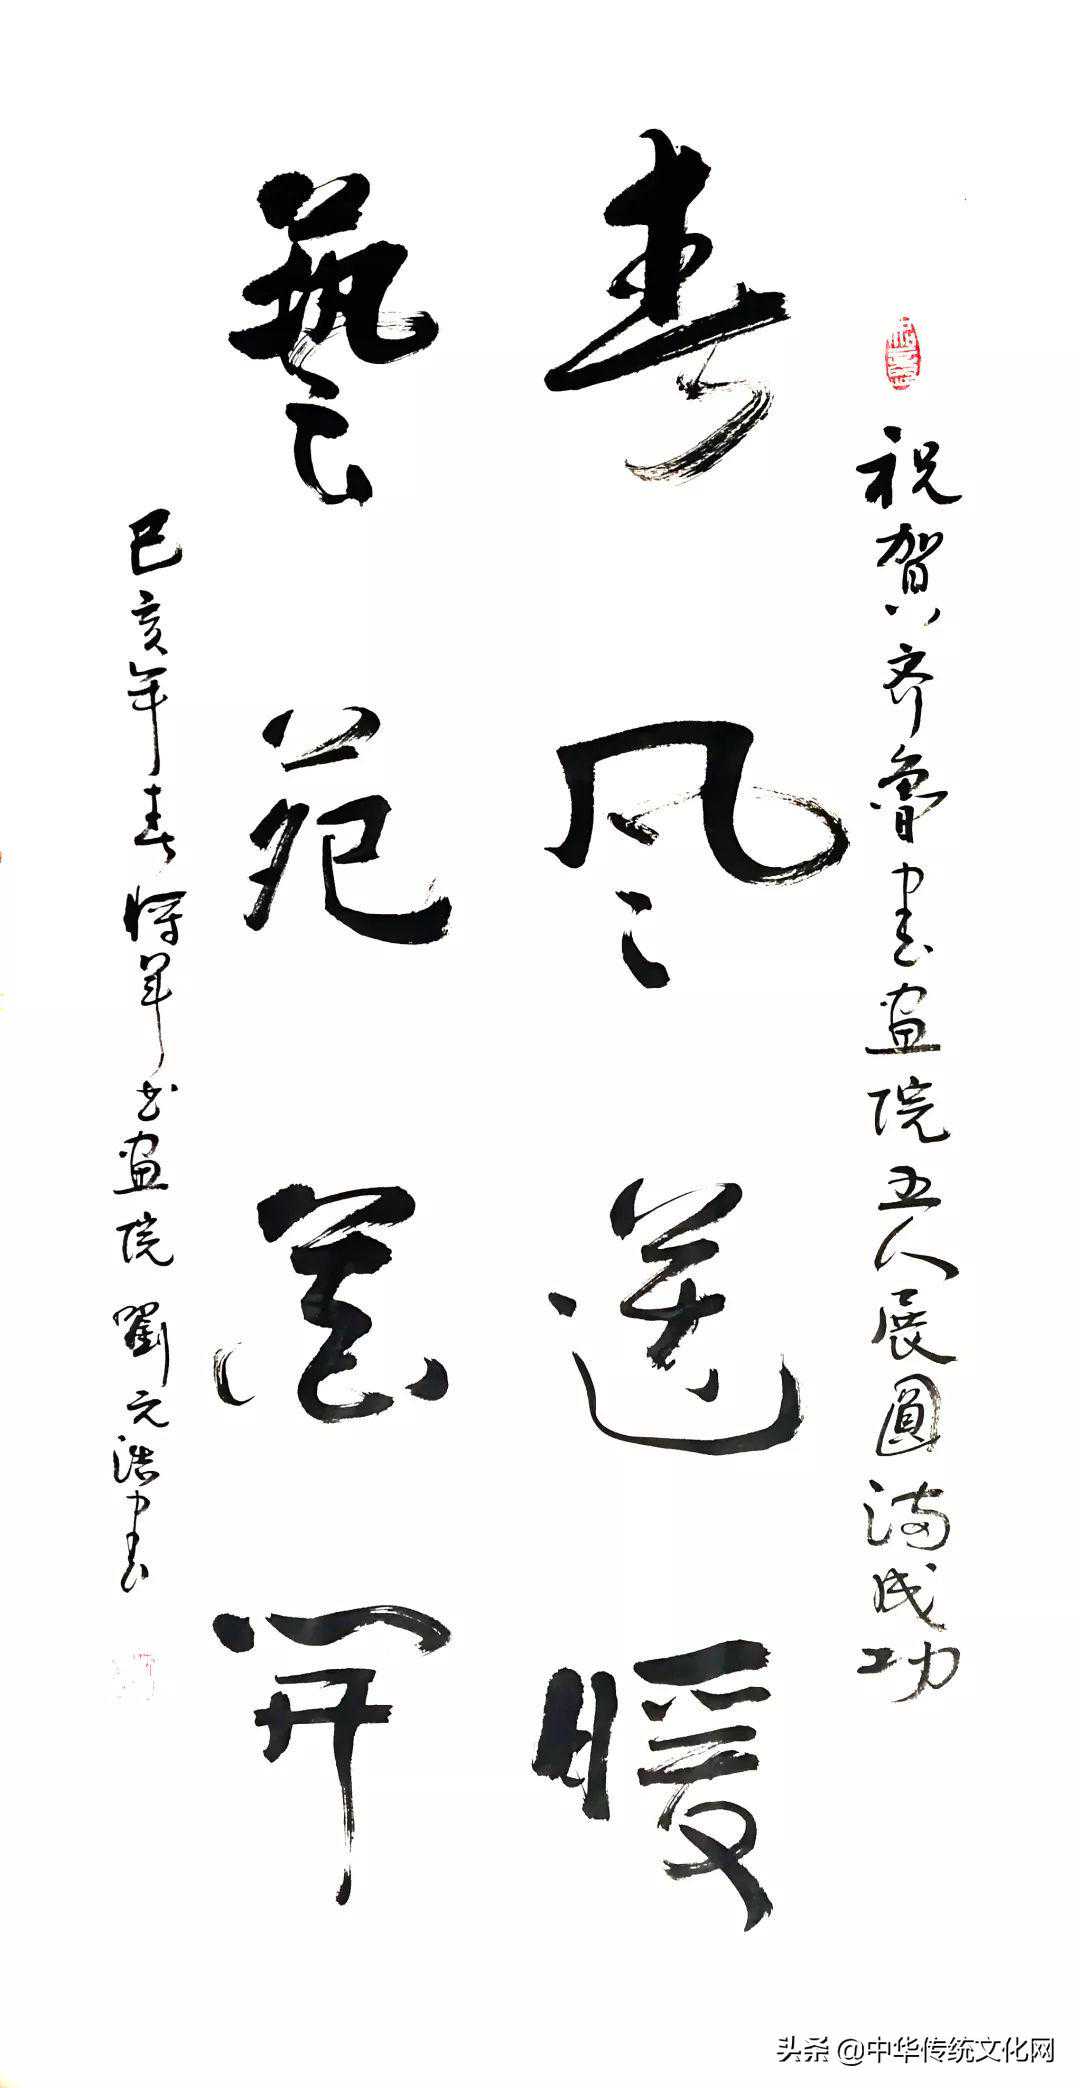 祝賀齐魯書画院五人展圓满成功
春风送暖
藝苑開
己亥年春将军书画院劉元浩書
头条 @中华传统文化网